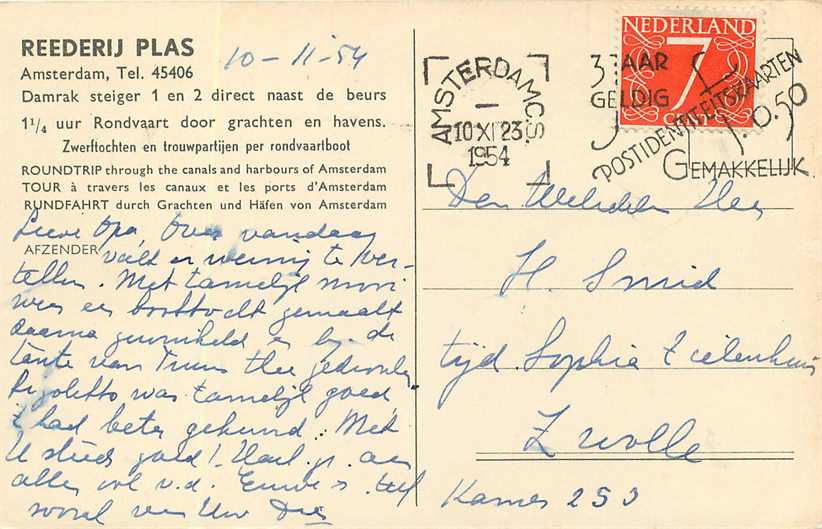 REEDERIJ PLAS
10-11-54
Amsterdam, Tel. 45406
Damrak steiger 1 en 2 direct naast de beurs
1¼ uur Rondvaart door grachten en havens.
Zwerftochten en trouwpartijen per rondvaartboot
ROUNDTRIP through the canals and harbours of Amsterdam
TOUR à travers les canaux et les ports d'Amsterdam
RUNDFAHRT durch Grachten und Häfen von Amsterdam
AFZENDER
Lieve Opa, Over vandaag
valt er weinig te ver-
tellen. Met tamelijk mooi
weer een boottocht gemaakt
daarna gewinkeld en bij de
tante van Truus thee gedronken
Rigoletto was tamelijk goed,
't had beter gekund. Met
U steeds goed! Hart. gr. aan
allen ook v.d.
vooral van Uw
NEDERLAND
7
CENT
AMSTERDAM C.S.
10 XI 23
1954
3 JAAR
GELDIG
POSTIDENTITEITSKAARTEN
f. 0.50
GEMAKKELIJK
Den Weledelen Heer
H. Smid
tijd. Sophia Ziekenhuis
Zwolle
Kamer 253